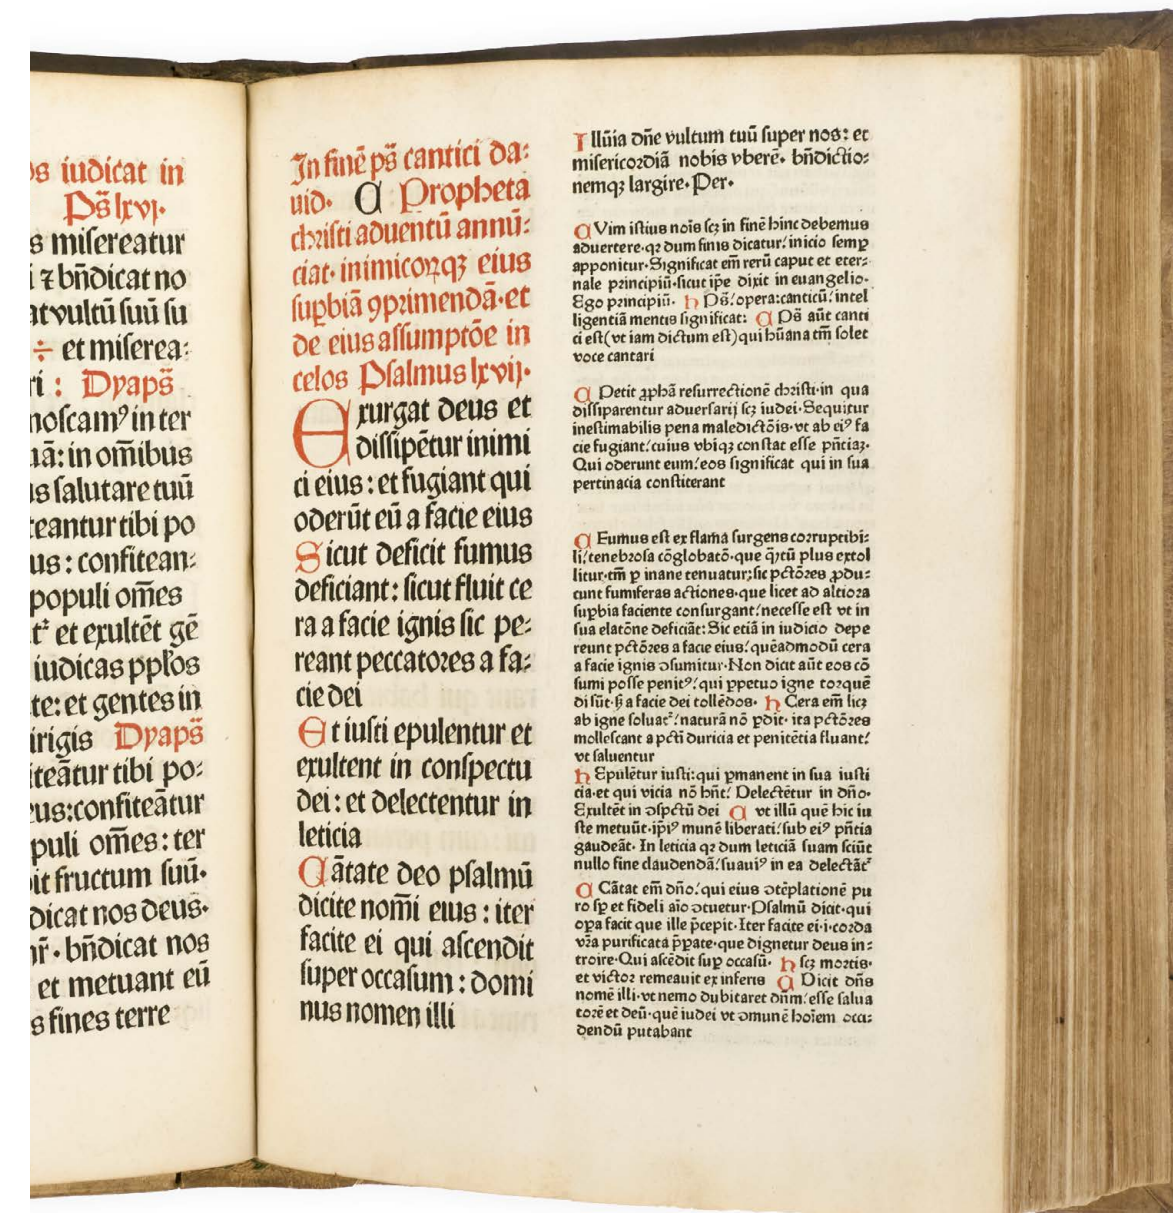 os iudicat in
Ps̃ lxvj·
s misereatur
i ⁊ bñdicat no
at vultũ suũ su
÷ et miserea⸗
ri : Dyaps̃
noscamꝰ in ter
uã: in om̃ibus
us salutare tuũ
teantur tibi po
us : confitean⸗
populi om̃es
tᷣ et exultẽt gẽ
iudicas pp̃los
te: et gentes in
irigis Dyaps̃
iteãtur tibi po⸗
eus:confiteãtur
puli om̃es : ter
it fructum suũ·
dicat nos deus·
nr̃· bñdicat nos
et metuant eũ
s fines terre
In finẽ ps̃ cantici da⸗
uid· A Propheta
christi aduentũ annũ⸗
ciat· inimicorꝝqꝫ eius
suꝑbiã ꝯprimendã·et
de eius assumptõe in
celos Psalmus lxvij·
Exurgat deus et
dissipẽtur inimi
ci eius : et fugiant qui
oderũt eũ a facie eius
Sicut deficit fumus
deficiant: sicut fluit ce
ra a facie ignis sic pe⸗
reant peccatores a fa⸗
cie dei
Et iusti epulentur et
exultent in conspectu
dei : et delectentur in
leticia
Cãtate deo psalmũ
dicite nom̃i eius : iter
facite ei qui ascendit
super occasum : domi
nus nomen illi
Illũia dñe vultum tuũ super nos: et
misericordiã nobis vbere· bñdictio⸗
nemqꝫ largire· Per·
A Vim istius nois̃ scꝫ in finẽ hinc debemus
aduertere·qꝛ dum finis dicatur/ inicio semꝑ
apponitur·Significat em̃ rerũ caput et eter⸗
nale principiũ·sicut ip̃e dixit in euangelio·
Ego principiũ· h Ps̃/ opera:canticũ/ intel
ligentiã mentis significat: A Ps̃ aũt canti
ci est(vt iam dictum est)qui hũana tm̃ solet
voce cantari
A Petit ꝓphã resurrectionẽ christi·in qua
dissiparentur aduersarij scꝫ iudei·Sequitur
inestimabilis pena maledictõis·vt ab eiꝰ fa
cie fugiant/ cuius vbiqꝫ constat esse pñtiaꝫ·
Qui oderunt eum/ eos significat qui in sua
pertinacia constiterant
A Fumus est ex flama surgens corruptibi⸗
li/ tenebrosa cõglobatõ·que qrtũ plus extol
litur·tm̃ ꝑ inane tenuatur;sic pctõres ꝓdu⸗
cunt fumiferas actiones·que licet ad altiora
suꝑbia faciente consurgant/ necesse est vt in
sua elatõne deficiãt: Sic etiã in iudicio depe
reunt pctõres a facie eius/ quẽadmodũ cera
a facie ignis ꝯsumitur·Non dicit aũt eos cõ
sumi posse penitꝰ/ qui ꝑpetuo igne torquẽ
di sũt·ẞ a facie dei tollẽdos· h Cera em̃ licꝫ
ab igne soluatᷣ/ naturã nõ ꝑdit· ita pctõres
mollescant a pcti duricia et penitẽtia fluant/
vt saluentur
h Epulẽtur iusti:qui ꝑmanent in sua iusti
cia·et qui vicia nõ hñt/ Delectẽtur in dño·
Exultẽt in ꝯspctũ dei A vt illũ quẽ hic iu
ste metuũt·ip̃iꝰ munẽ liberati/ sub eiꝰ pñtia
gaudeãt· In leticia qꝛ dum leticiã suam sciũt
nullo fine claudendã/ suauiꝰ in ea delectãtᷣ
A Cãtat em̃ dño/ qui eius ꝯtẽplationẽ pu
ro sp̃ et fideli aio ꝯtuetur·Psalmũ dicit·qui
oꝑa facit que ille p̃cepit·Iter facite ei·i·corda
vr̃a purificata p̃ꝑate·que dignetur deus in⸗
troire·Qui ascẽdit suꝑ occasũ· h scꝫ mortis·
et victor remeauit ex inferis A Dicit dñs
nomẽ illi·vt nemo dubitaret dñm/ esse salua
torẽ et deũ·quẽ iudei vt ꝯmunẽ hoĩem occi⸗
dendũ putabant